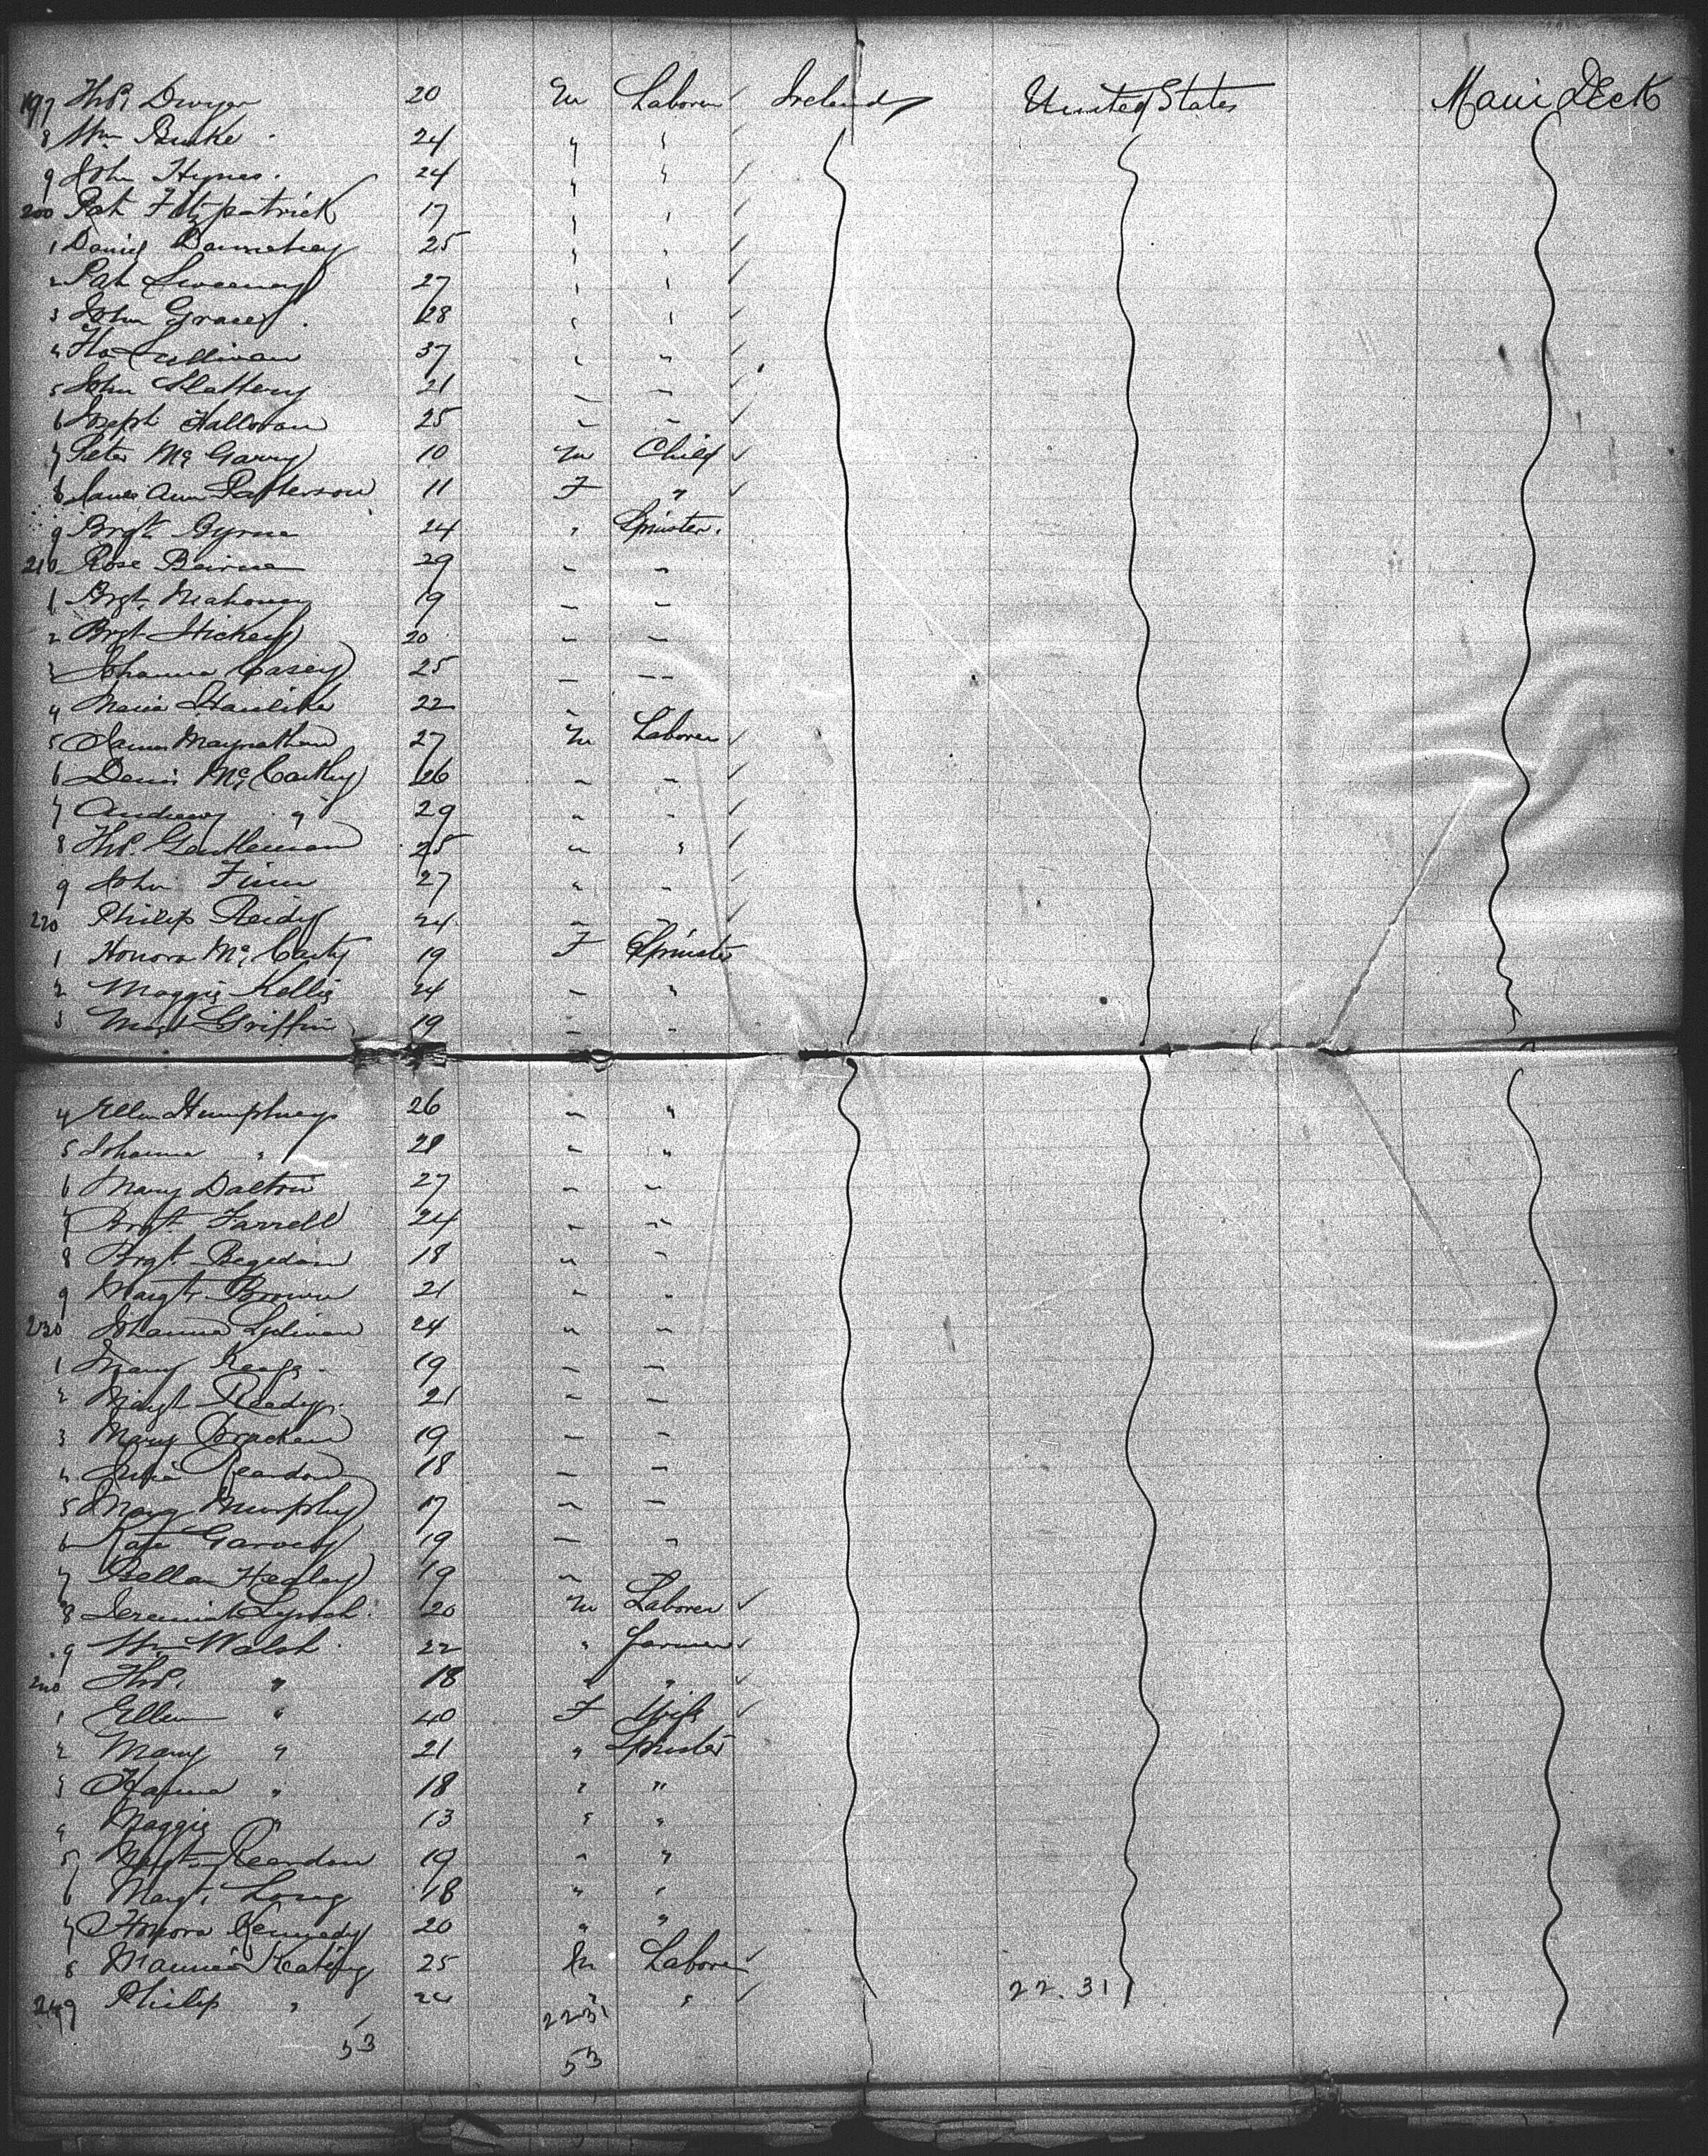 197 Thos. Dwyer 20 M Laborer Ireland United States Main Deck
8 Wm Burke 24 " "
9 John Hynes 24 " "
200 Pat Fitzpatrick 17 " "
1 Daniel 25 " "
2 Pat Sweeney 27 " "
3 John Grace 28 " "
4 Sullivan 37 " "
5 John Slattery 21 " "
6 Joseph Halloran 25 " "
7 Peter McGarry 10 M Child
8 Ann Patterson 11 F "
9 Brgt. Byrne 24 " Spinster
210 Rose Beirne 29 " "
1 Brgt. Mahoney 19 " "
2 Brgt Hickey 20 " "
3 Johanna Casey 25 " "
4 Maria 22 "
5 James 27 M Laborer
6 Denis McCarthy 26 " "
7 Andrew " 29 " "
8 Thos. Gentleman 25 " "
9 John Finn 27 " "
220 Philip Reidy 24 " "
1 Honora McCarty 19 F Spinster
2 Maggie Kellie 24 " "
3 Margt Griffin 19 " "
4 Ellen Humphreys 26 " "
5 Johanna " 28 " "
6 Mary Dalton 27 " "
7 Brgt. Farrell 24 " "
8 Brgt. 18 " "
9 Margt. Brown 21 " "
230 Johanna 24 " "
1 Mary 19 " "
2 Margt Reedy 21 " "
3 Mary Bracken 19 " "
4 Julia Reardon 18 " "
5 Mary Murphy 17 " "
6 Kate Garvey 19 " "
7 Bella Healey 19 " "
8 Jeremiah Lynch 20 M Laborer
9 Wm Walsh 22 " farmer
240 Thos. " 18 " "
1 Ellen " 40 F Wife
2 Mary " 21 " Spinster
3 Hanna " 18 " "
4 Maggie " 13 " "
5 Margt. Reardon 19 " "
6 Margt. Long 18 " "
7 Honora Kennedy 20 " "
8 Maurice Keating 25 M Laborer
249 Philip " 24 " " 22.31
2231
53 53